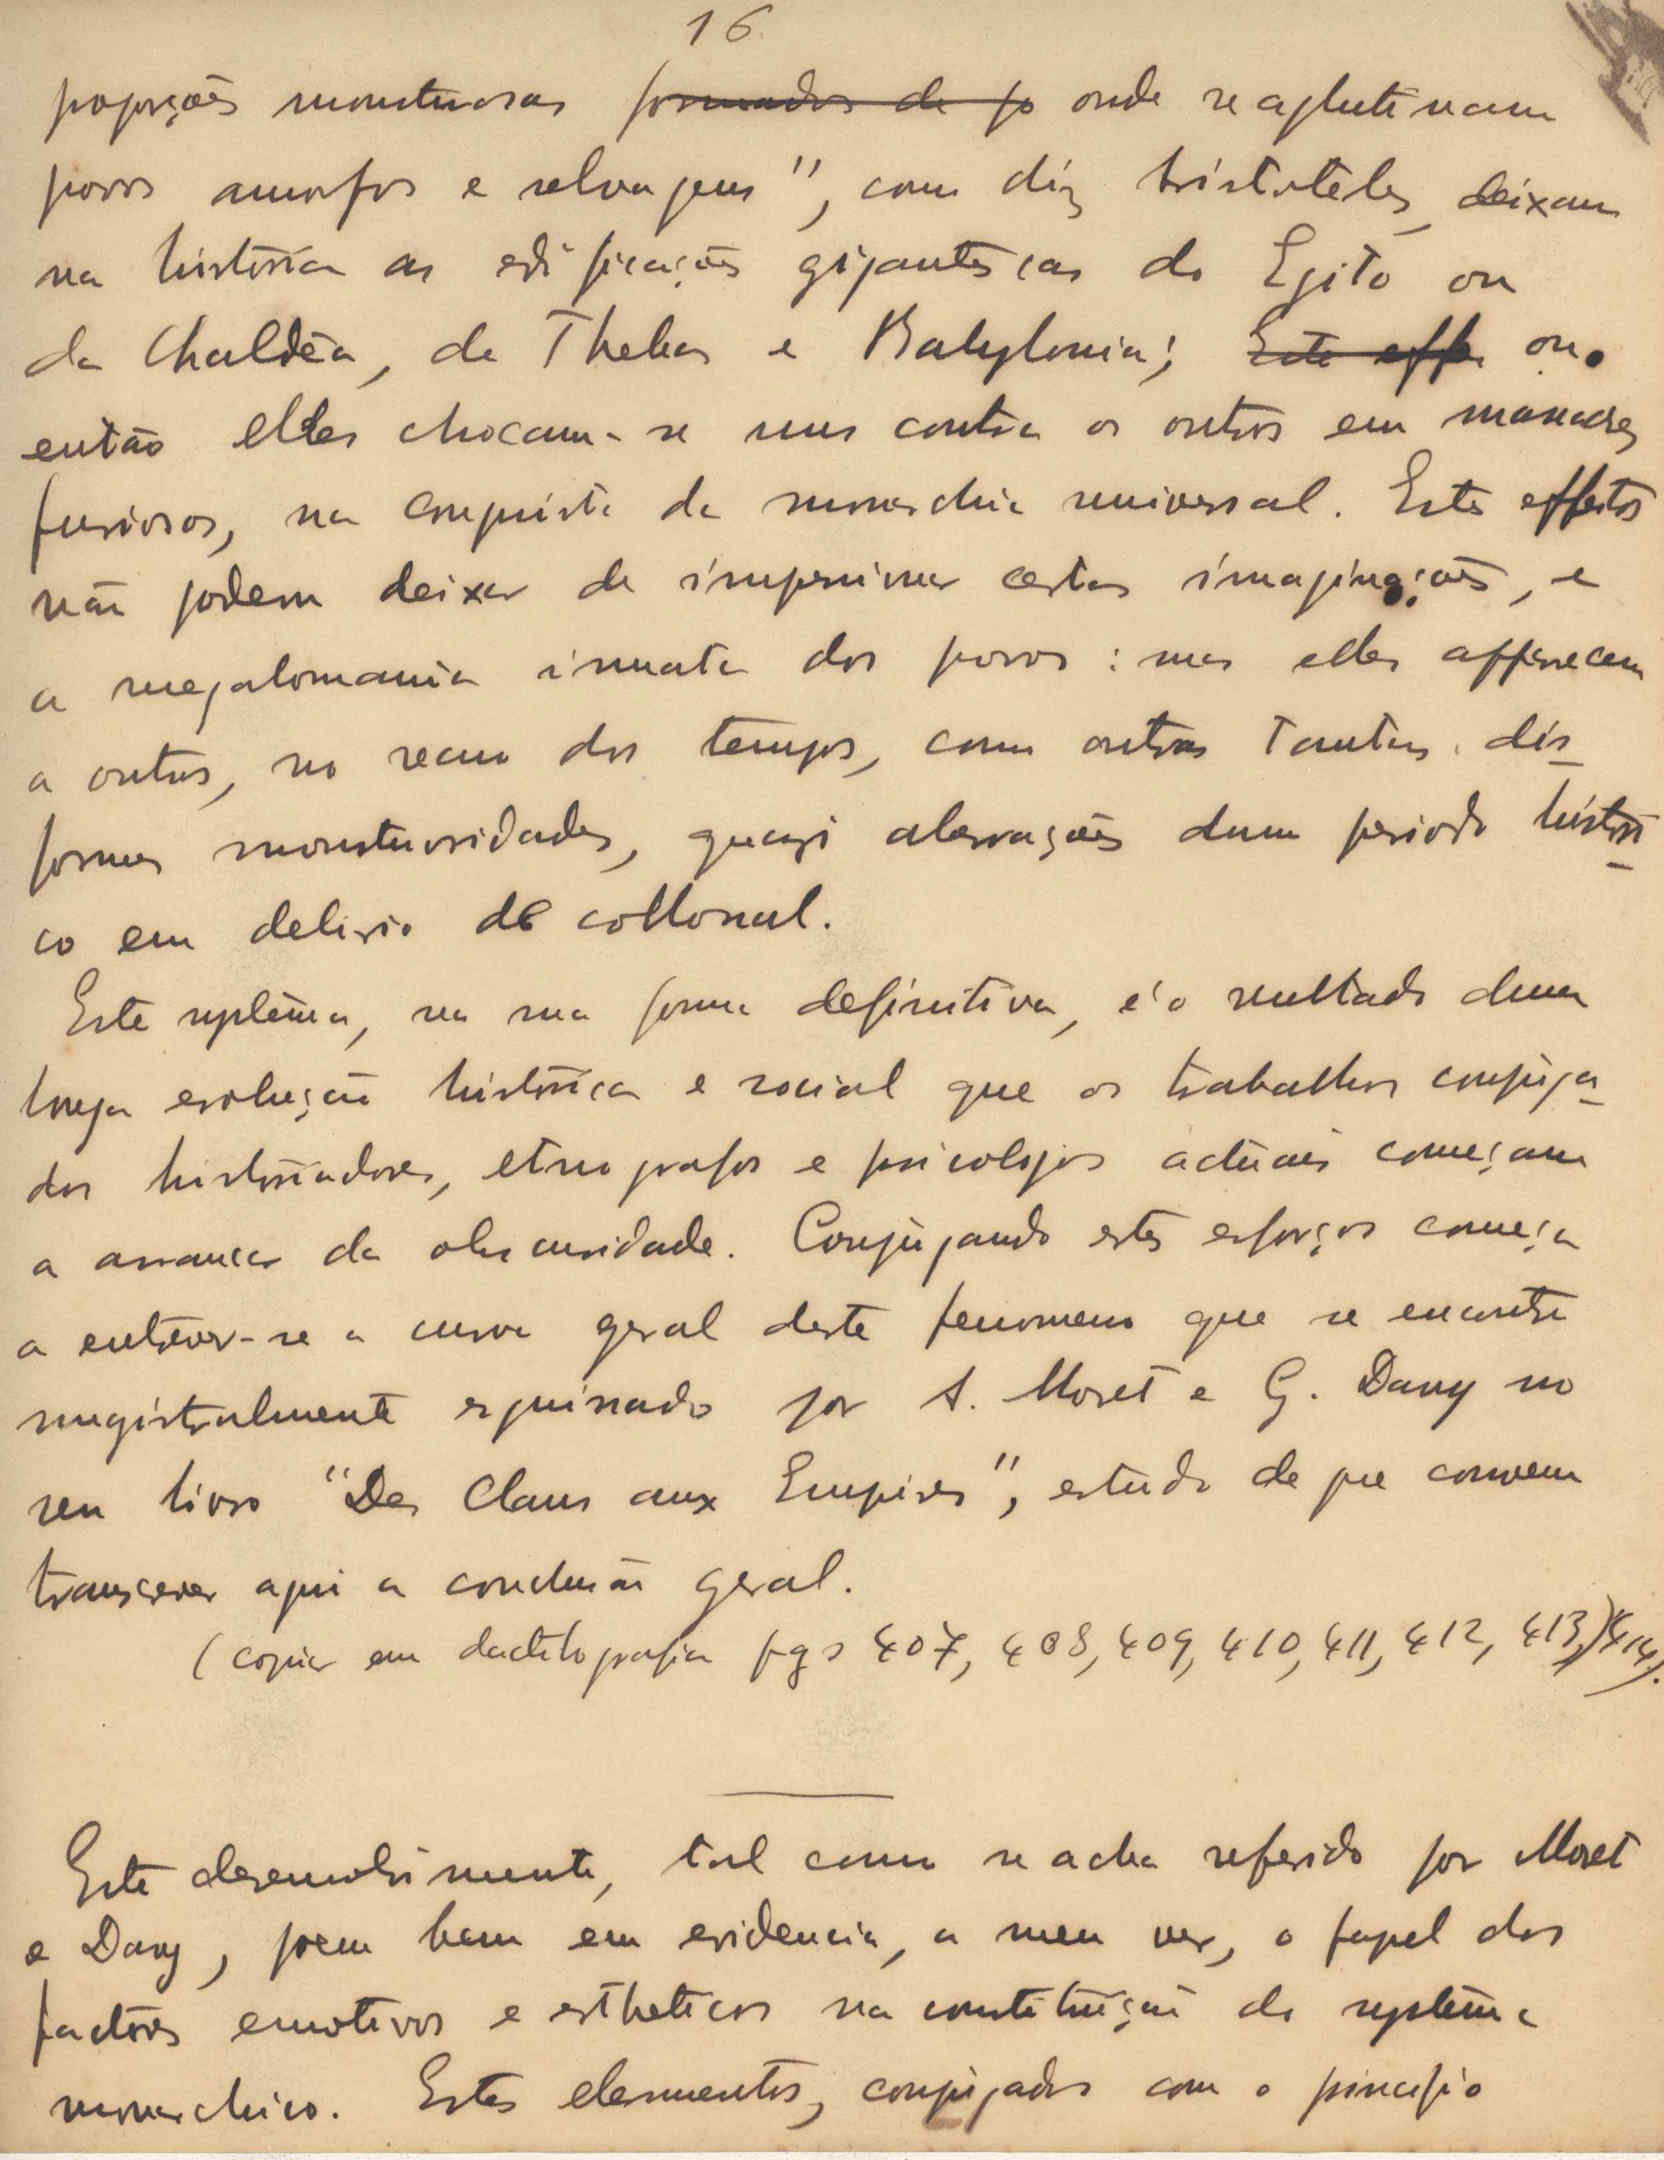 16.
proporções monstruosas ~~formados de po~~ onde se aglutinam
povos amorfos e selvagens", como diz Aristoteles, deixam
na história as edificações gigantescas do Egito ou
da Chaldêa, de Thebas e Babylonia; ~~Este effe~~ ou
então elles chocam-se uns contra os outros em
furiosos, na conquista da monarchia universal. Estes effeitos
não podem deixar de impressionar certas imaginações, e
a megalomania innata dos povos: mas elles apparecem
a outros, no recuo dos tempos, como outras tantas dis-
formes monstruosidades, quasi aberrações dum periodo histori-
co em delirio de collossal.
Este systema, na sua forma definitiva, é o resultado duma
longa evolução histórica e social que os trabalhos conjuga-
dos historiadores, etnografos e psicologos actuais começam
a arrancar da obscuridade. Conjugando estes esforços começa
a entrever-se a curva geral deste fenomeno que se encontra
magistralmente esquissado por A. Moret e G. Davy no
seu livro "Des Clans aux Empires", estudo de que convem
transcrever aqui a conclusão geral.
(copiar em dactilografia pgs 407, 408, 409, 410, 411, 412, 413, 414).
Este desenvolvimento, tal como se acha referido por Moret
e Davy, poem bem em evidencia, a meu ver, o papel dos
factores emotivos e estheticos na constituição do systema
monarchico. Estes elementos, conjugados com o principio